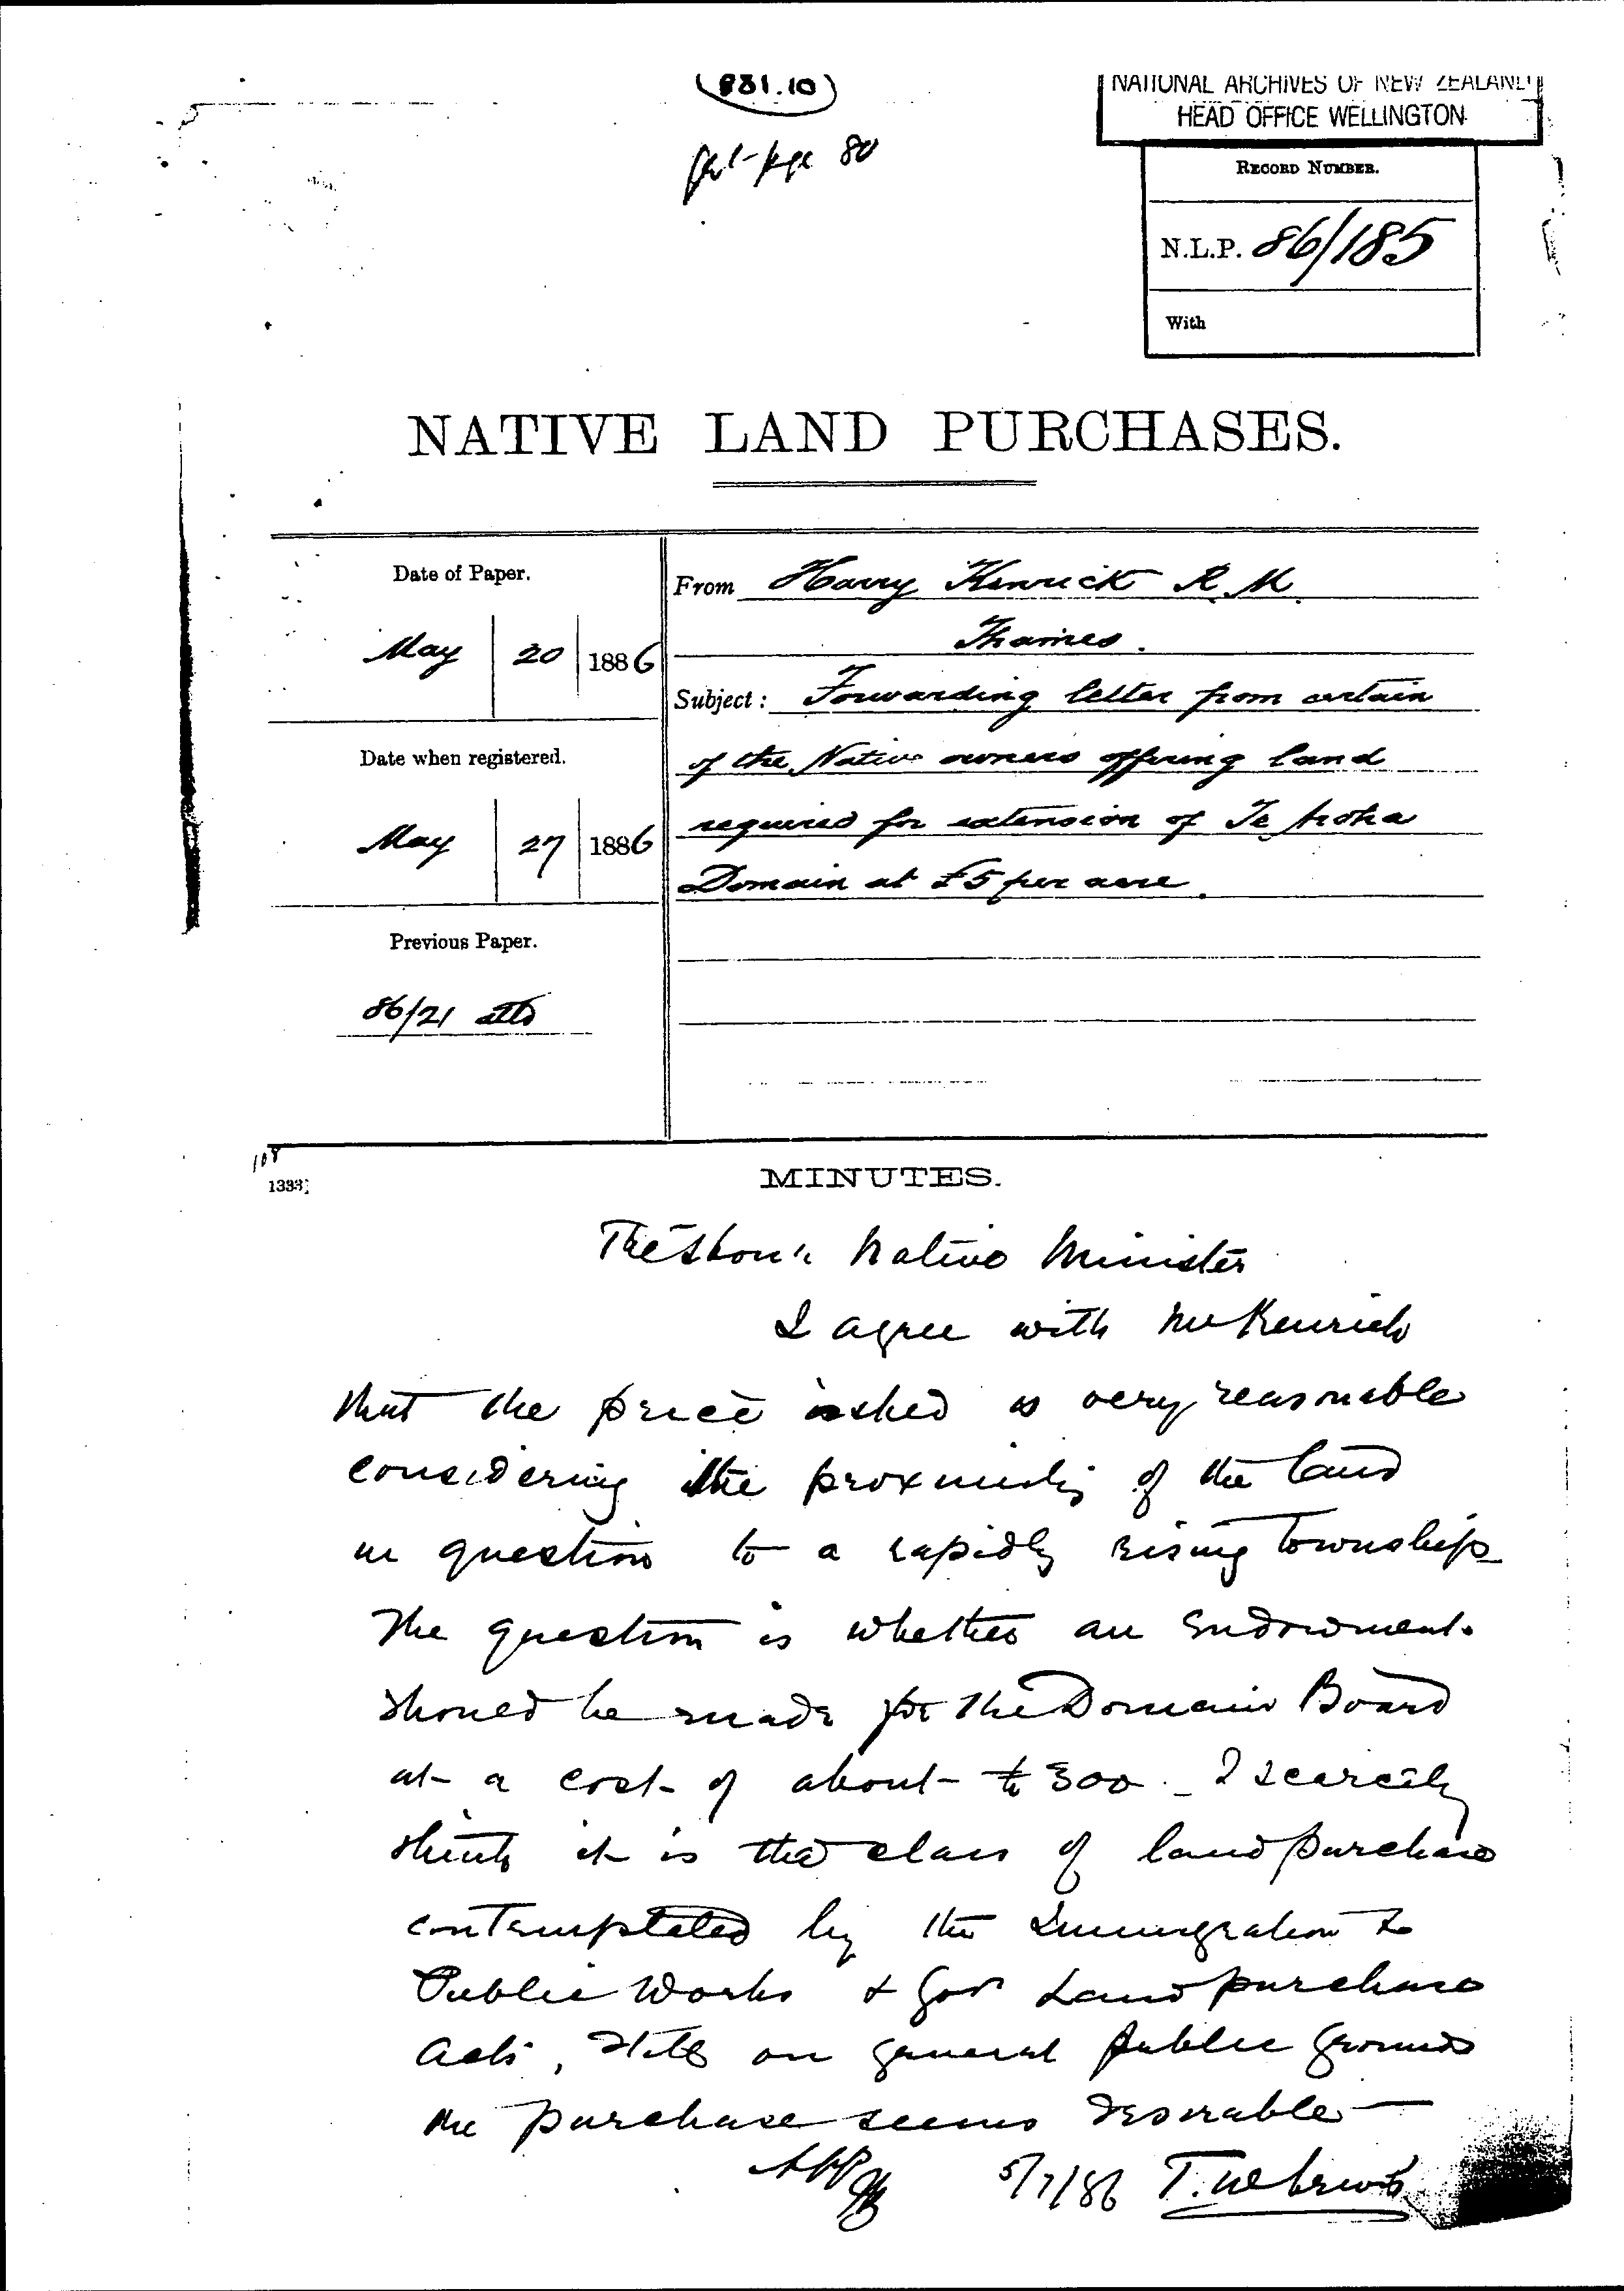 831.10
page 80
NATIONAL ARCHIVES OF NEW ZEALAND
HEAD OFFICE WELLINGTON
RECORD NUMBER.
N.L.P. 86/185
With
NATIVE LAND PURCHASES.
Date of Paper.
May 20 1886
Date when registered.
May 27 1886
Previous Paper.
86/21 attd
From Harry Kenrick R.M.
Thames.
Subject: Forwarding letter from certain
of the Native owners offering land
required for extension of Te Aroha
Domain at £5 per acre.
108
1333]
MINUTES.
The Hon. Native Minister
I agree with Mr Kenrick
that the price asked is very reasonable
considering the proximity of the land
in question to a rapidly rising township
The question is whether an endowment
should be made for the Domain Board
at a cost of about £300. I scarcely
think it is the class of land purchase
contemplated by the Immigration &
Public Works & Gov Land purchase
Acts, still on general public grounds
the purchase seems desirable
5/7/86 T. W. Lewis